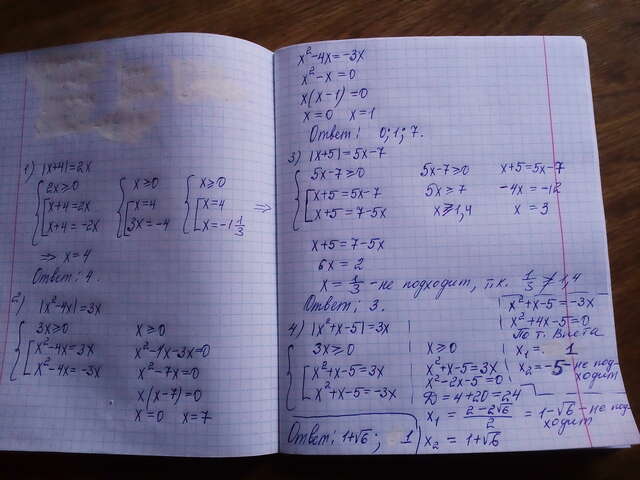 1) |x+4|=2x
{ 2x≥0 { x≥0 { x≥0
[ x+4=2x [ x=4 [ x=4 ⇒
x+4=-2x 3x=-4 x=-1 1/3
⇒ x=4
Ответ: 4.
2) |x²-4x|=3x
{ 3x≥0 x≥0
[ x²-4x=3x x²-4x-3x=0
x²-4x=-3x x²-7x=0
x(x-7)=0
x=0 x=7
x²-4x=-3x
x²-x=0
x(x-1)=0
x=0 x=1
Ответ: 0;1;7.
3) |x+5|=5x-7
{ 5x-7≥0 5x-7≥0 x+5=5x-7
[ x+5=5x-7 5x≥7 -4x=-12
x+5=7-5x x≥1,4 x=3
x+5=7-5x
6x=2
x=1/3 -не подходит, т.к. 1/3 ≱ 1,4
Ответ: 3.
4) |x²+x-5|=3x
{ 3x≥0 x≥0
[ x²+x-5=3x x²+x-5=3x
x²+x-5=-3x x²-2x-5=0
D=4+20=24
x₁=(2-2√6)/2=1-√6 -не подходит
x₂=1+√6
x²+x-5=-3x
x²+4x-5=0
По т. Виета
x₁=1
x₂=-5-не подходит
Ответ: 1+√6; 1